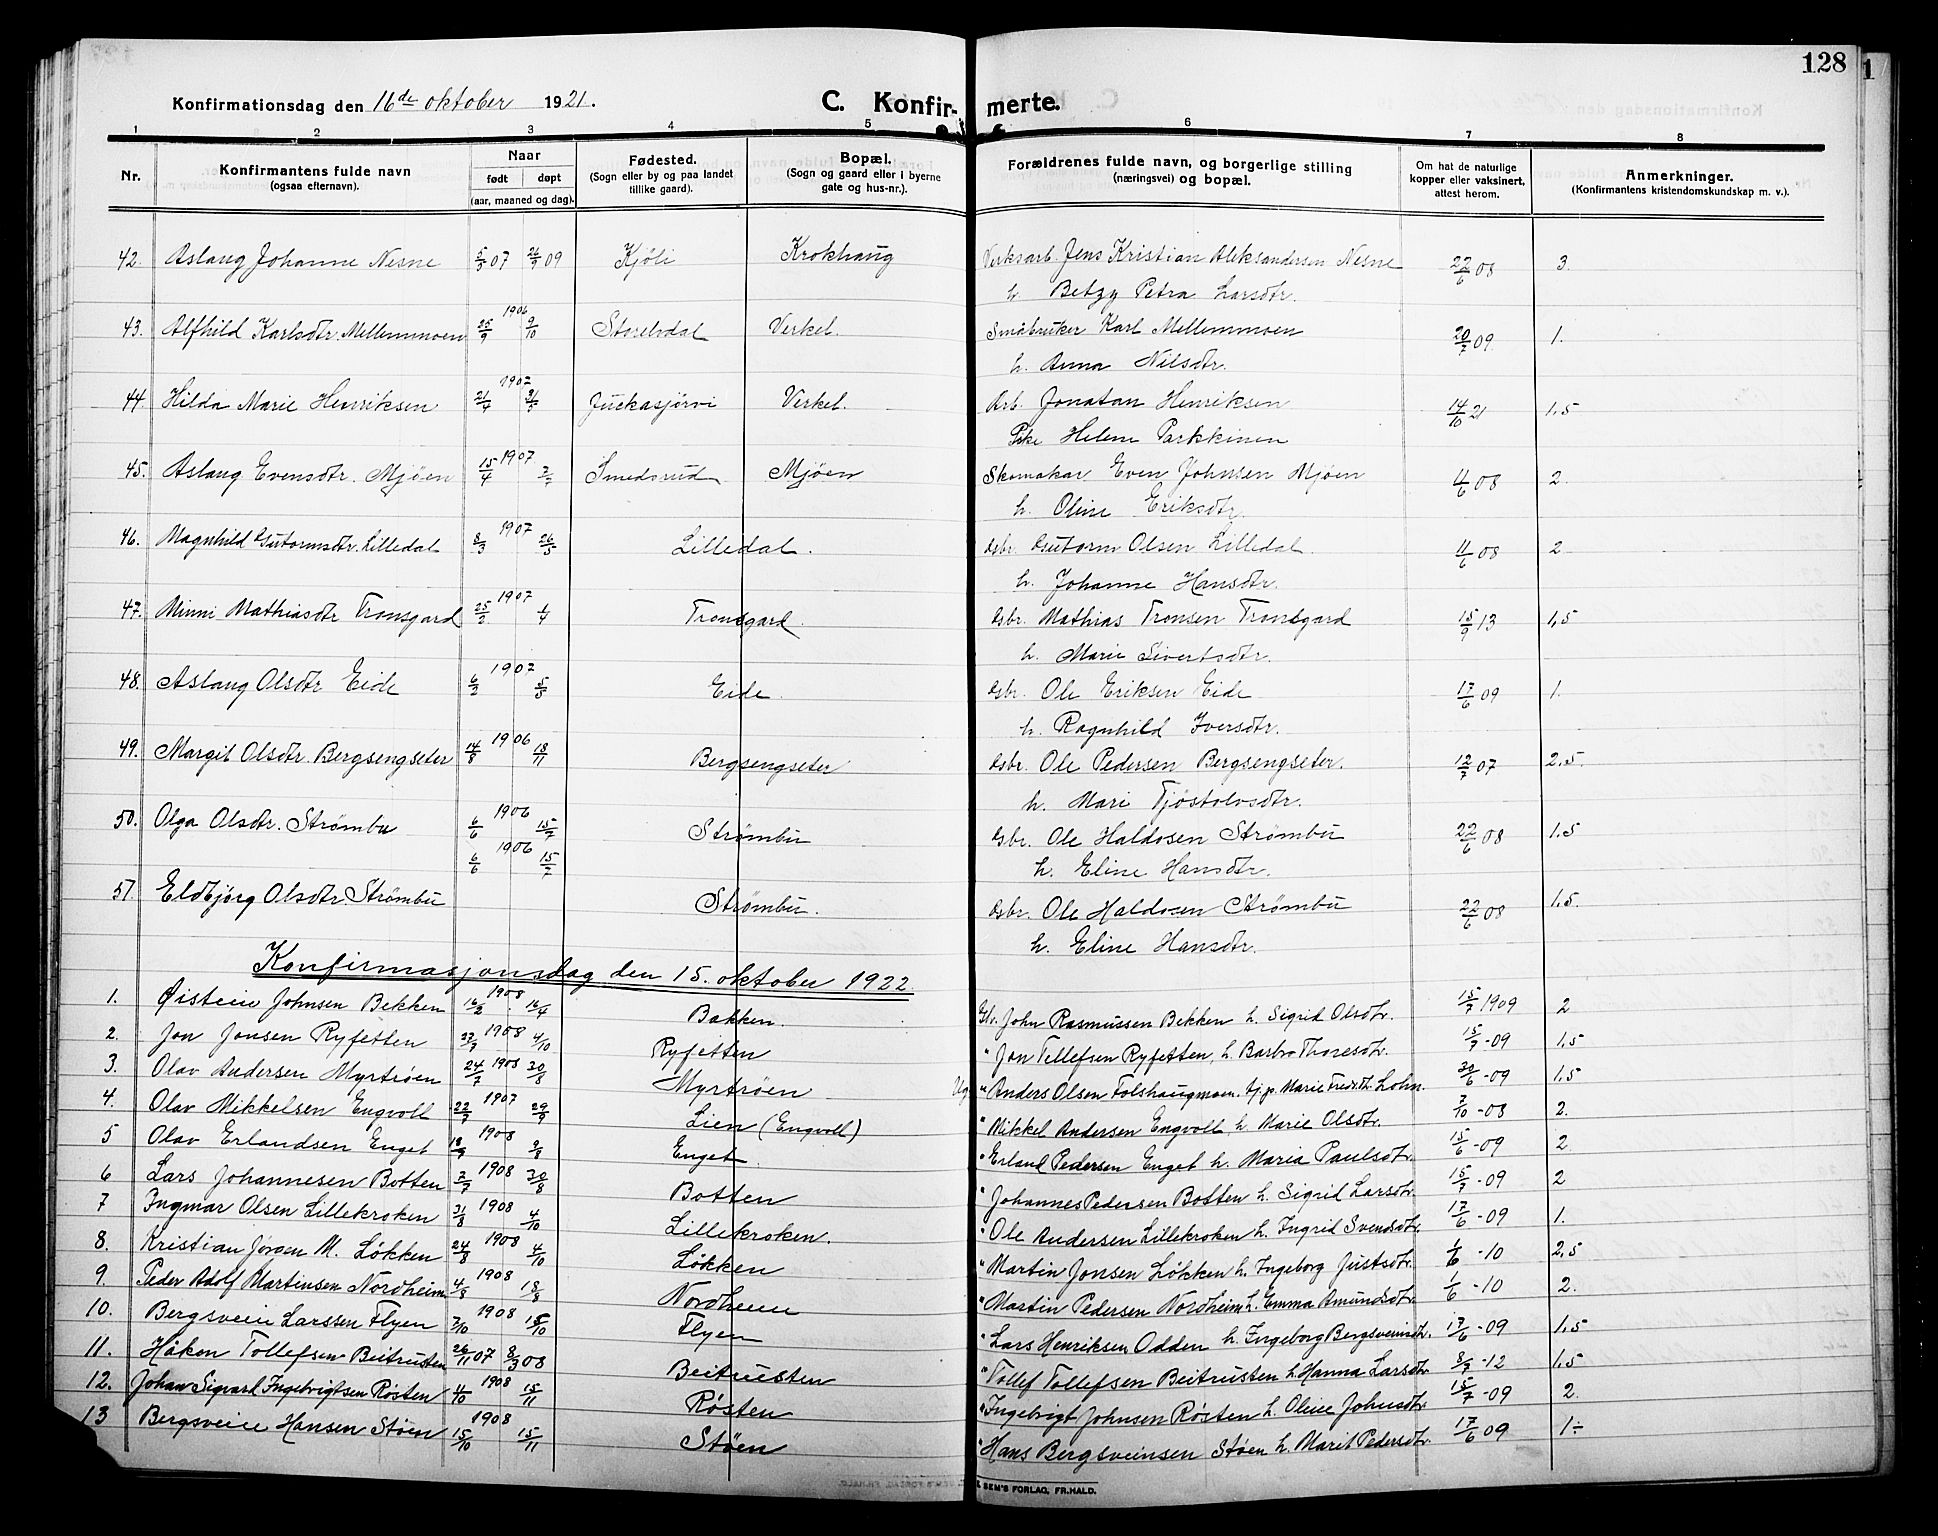 128
Konfirmationsdag den 16de oktober 1921.
C. Konfir- merte.
1 2 3 4 5 6 7 8
Nr. Konfirmantens fulde navn (ogsaa efternavn). Naar født døpt (aar, maaned og dag). Fødested. (Sogn eller by og paa landet tillike gaard). Bopæl. (Sogn og gaard eller i byerne gate og hus-nr.). Forældrenes fulde navn, og borgerlige stilling (næringsvei) og bopæl. Om hat de naturlige kopper eller vaksinert, attest herom. Anmerkninger. (Konfirmantens kristendomskundskap m. v.).
42. Aslaug Johanne Nesne 5/3 07 26/9 09 Kjöli Krokhaug Verksarb. Jens Kristian Aleksandersen Nesne 22/6 08 3.
h. Betzy Petra Larsdtr.
43. Alfhild Karlsdtr. Mellemmoen 25/9 1906 9/10 Storelvdal Verket. Småbruker Karl Mellemmoen 20/7 09. 1.
h. Anna Nilsdtr.
44. Hilda Marie Henriksen 21/4 1907 Juckasjärvi Verket. Arb. Jonatan Henriksen 14/10 21 1,5
Pike Helene Parkkinen
45. Aslaug Evensdtr. Mjöen 15/4 1907 2/7 Smedsrud Mjöen Skomakar Even Johnsen Mjöen 11/6 08 2.
h. Oline Eriksdtr.
46. Magnhild Gutormsdtr. Lilledal 8/3 1907 26/5 Lilledal. Gbr. Gutorm Olsen Lilledal. 11/6 08 2
h. Johanne Hansdtr.
47. Minni Mathiasdtr Tronsgard 25/2 1907 1/4 Tronsgard. Gbr. Mathias Tronsen Tronsgard 15/9 13 1,5
h. Marie Sivertsdtr.
48. Aslaug Olsdtr Eide 6/2 1907 5/5 Eide. Gbr. Ole Eriksen Eide 17/6 09 1.
h. Ragnhild Iversdtr.
49. Margit Olsdtr. Bergsengseter 14/8 1906 18/11 Bergsengseter Gbr. Ole Pedersen Bergsengseter. 12/7 07 2,5.
h. Mari Tjöstolvsdtr.
50. Olga Olsdtr. Strømbu 6/6 1906 15/7 Strømbu Gbr. Ole Haldosen Strømbu 22/6 08 1.5
h. Eline Hansdtr.
51. Eldbjörg Olsdtr. Strømbu 6/6 1906 15/7 Strømbu. Gbr. Ole Haldosen Strømbu 22/6 08 1.5.
h. Eline Hansdtr.
Konfirmasjonsdag den 15. oktober 1922.
1. Øistein Johnsen Bekken 16/2 1908 16/4 Bakken. Gbr. John Rasmussen Bekken h. Sigrid Olsdtr. 15/7 1909 2
2. Jon Jonsen Ryfetten 27/7 1908 4/10 Ryfetten " Jon Tellefsen Ryfetten, h. Barbro Thoresdtr. 15/7 -09 1.5
3. Olav Andersen Myrtröen 24/7 1908 30/8 Myrtröen Ug. " Anders Olsen Tolshaugmoen. tj.p. Marie Fredr.dtr. Lohn. 30/6 -09 1.5
4. Olav Mikkelsen Engvoll 22/7 1907 29/9 Lien (Engvoll) " Mikkel Andersen Engvoll, h. Marie Olsdtr. 7/10 -08 2.
5 Olav Erlandsen Enget 1908 Enget. " Erland Pedersen Enget h. Maria Paulsdtr. 15/6 -09 2.
6 Lars Johannesen Botten 2/7 1908 30/8 Botten " Johannes Pedersen Botten h. Sigrid Larsdtr. 15/7 -09 2
7 Ingmar Olsen Lillekroken 31/8 1908 4/10 Lillekroken. " Ole Andersen Lillekroken h. Ingrid Svendsdtr. 17/6 -09 1.
8. Kristian Jörgen M. Lökken 24/8 1908 4/10 Lökken " Martin Jonsen Lökken h. Ingeborg Justsdtr. 1/6 -10 2,5
9. Peder Adolf Martinsen Nordheim 4/8 1908 18/8 Nordheim " Martin Pedersen Nordheim h. Emma Amundsdtr. 1/6 -10 2.
10. Bergsvein Larssen Flyen 2/10 1908 15/10 Flyen " Lars Henriksen Odden h. Ingeborg Bergsveinsdtr. 17/6 -09 1.5
11. Håken Tollefsen Beitrusten 26/11 07 8/3 08 Beitrusten " Tollef Tollefsen Beitrusten h. Hanna Larsdtr. 8/7 -12 1.5
12. Johan Sigvard Ingebrigtsen Rösten 4/10 1908 15/11 Rösten " Ingebrigt Johnsen Rösten h. Oline Johnsdtr. 15/7 -09 2.
13 Bergsvein Hansen Stöen 15/10 1908 15/11 Stöen " Hans Bergsveinsen Stöen h. Marit Pedersdtr. 17/6 09 1÷
SEM'S FORLAG, FR.HALD.